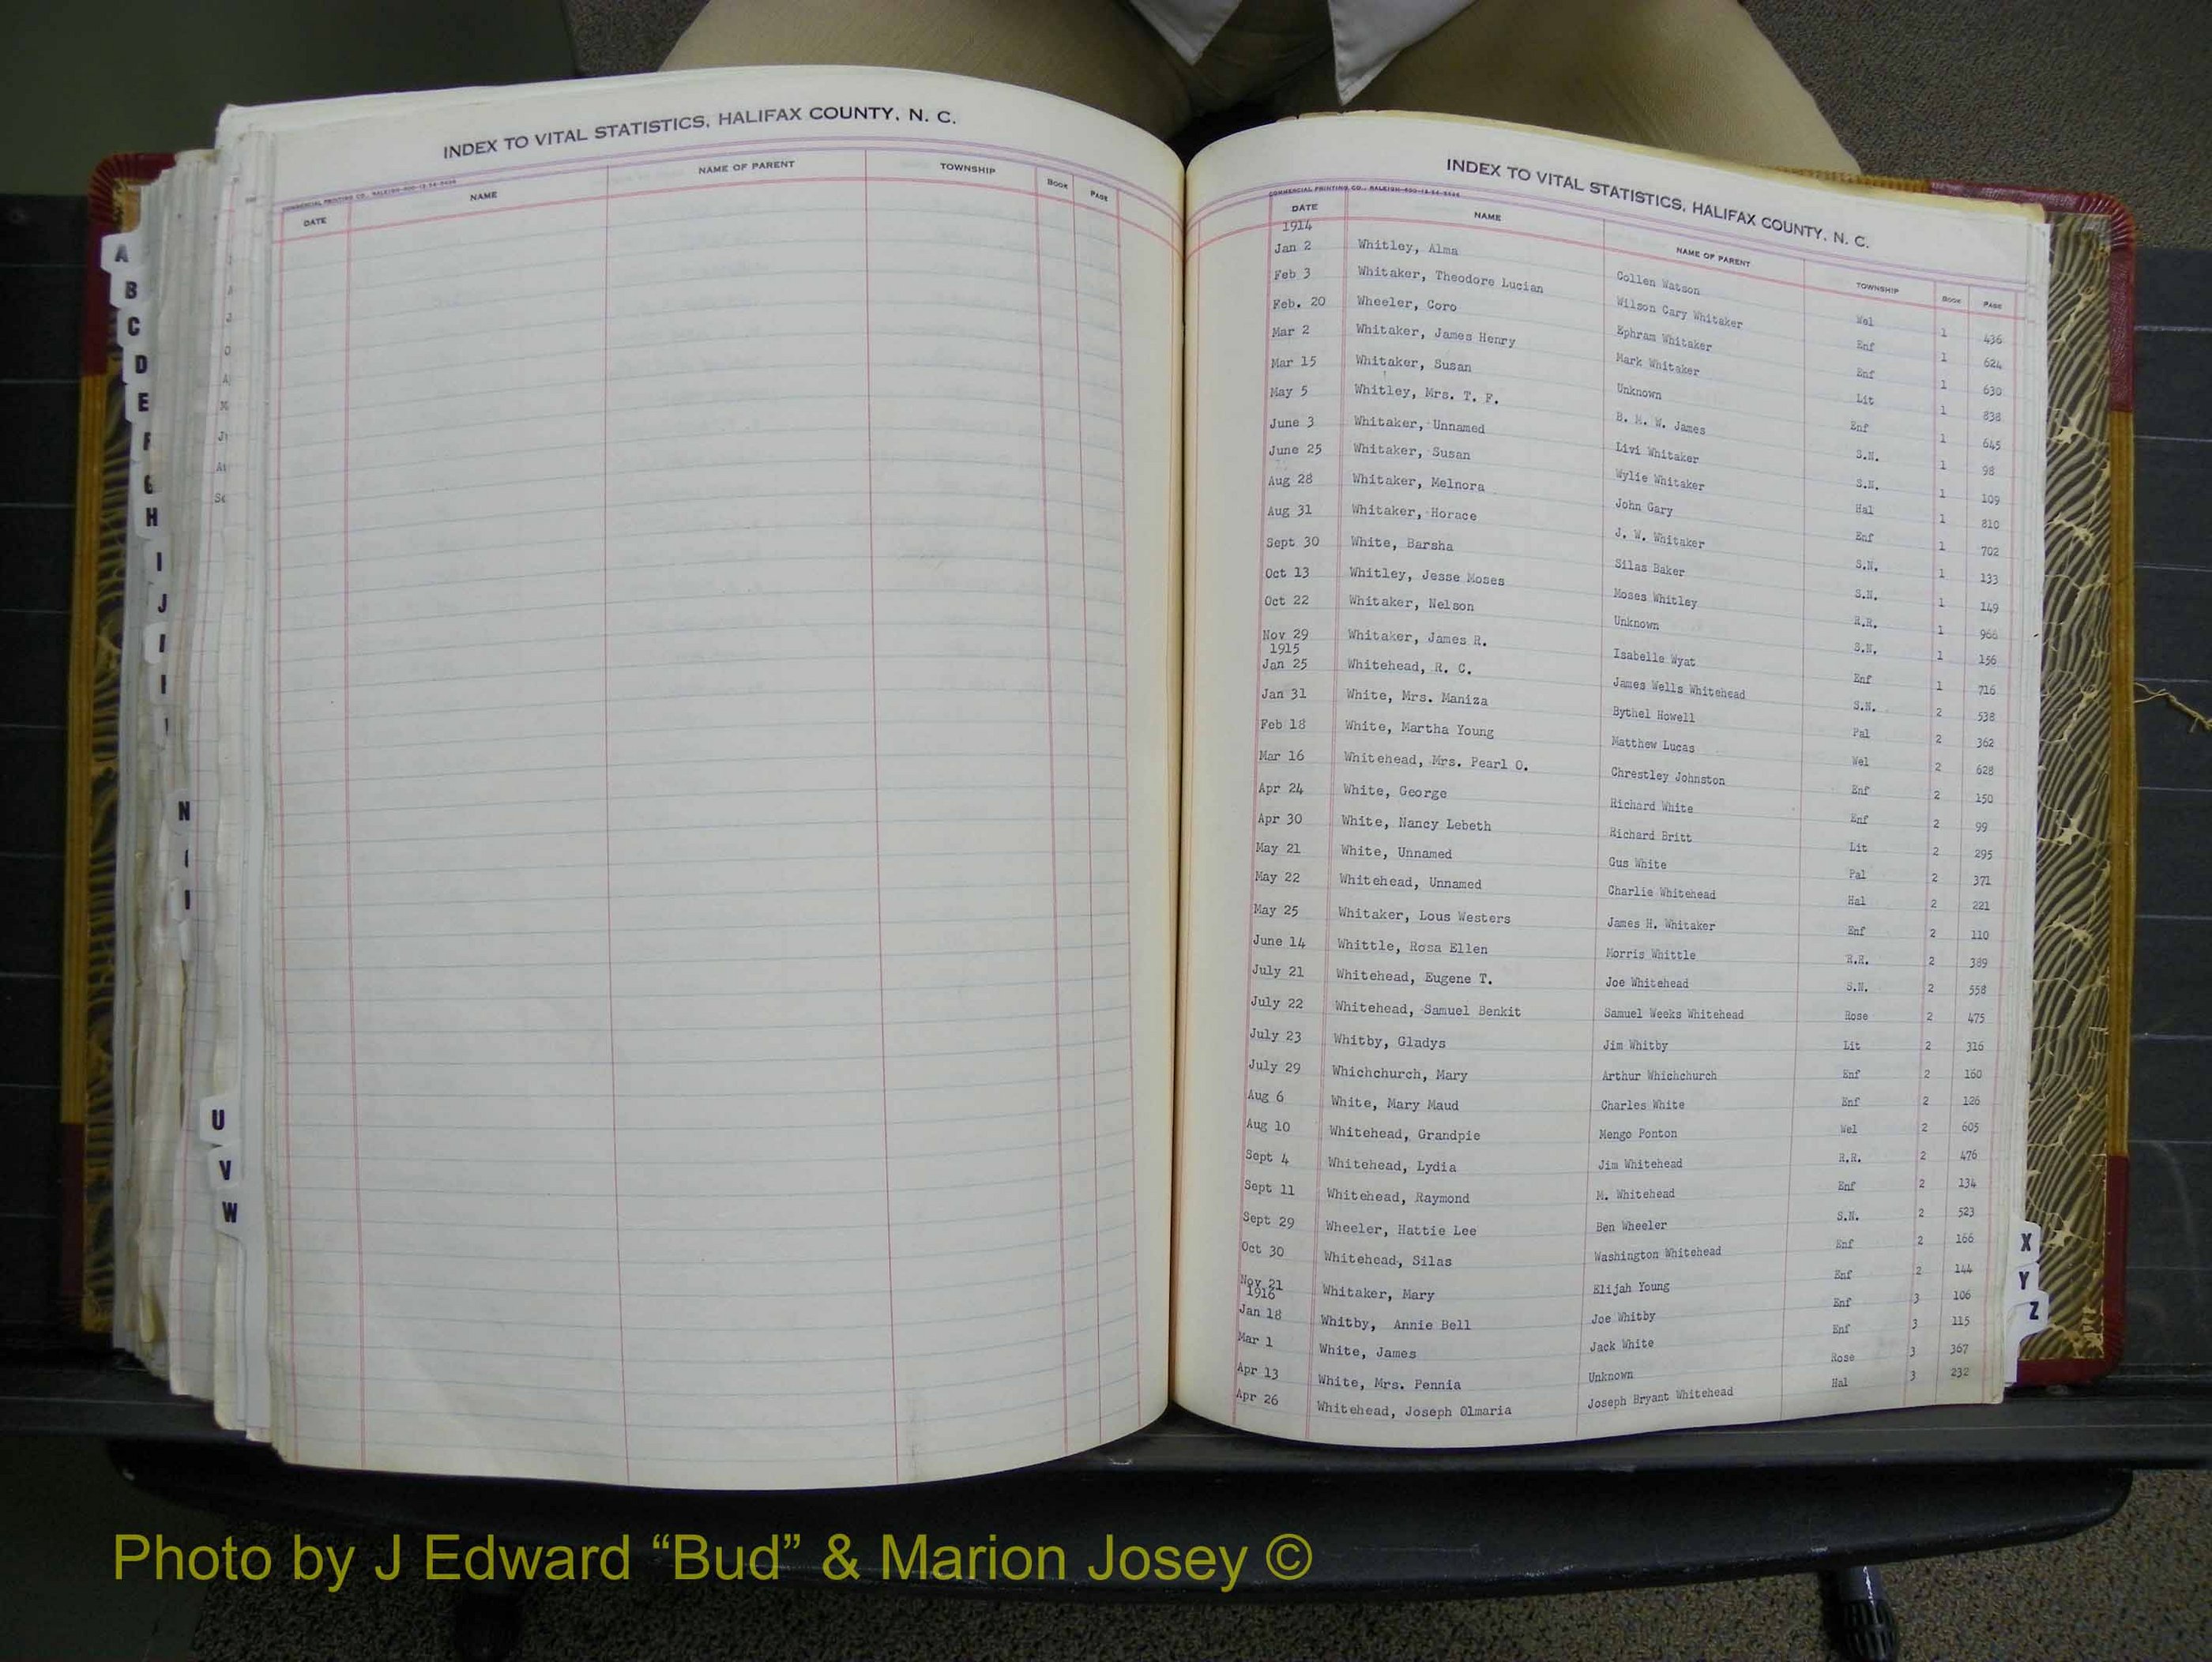 INDEX TO VITAL STATISTICS, HALIFAX COUNTY, N. C.
COMMERCIAL PRINTING CO., RALEIGH
DATE NAME NAME OF PARENT TOWNSHIP BOOK PAGE
A
B
C
D
E
F
G
H
I
J
N
U
V
W
INDEX TO VITAL STATISTICS, HALIFAX COUNTY, N. C.
COMMERCIAL PRINTING CO., RALEIGH
DATE NAME NAME OF PARENT TOWNSHIP BOOK PAGE
1914
Jan 2 Whitley, Alma Collen Watson Wel 1 436
Feb 3 Whitaker, Theodore Lucian Wilson Cary Whitaker Enf 1 624
Feb. 20 Wheeler, Coro Ephram Whitaker Enf 1 630
Mar 2 Whitaker, James Henry Mark Whitaker Lit 1 838
Mar 15 Whitaker, Susan Unknown Enf 1 645
May 5 Whitley, Mrs. T. F. B. M. W. James S.N. 1 98
June 3 Whitaker, Unnamed Livi Whitaker S.N. 1 109
June 25 Whitaker, Susan Wylie Whitaker Hal 1 810
Aug 28 Whitaker, Melnora John Gary Enf 1 702
Aug 31 Whitaker, Horace J. W. Whitaker S.N. 1 133
Sept 30 White, Barsha Silas Baker S.N. 1 149
Oct 13 Whitley, Jesse Moses Moses Whitley R.R. 1 966
Oct 22 Whitaker, Nelson Unknown S.N. 1 156
Nov 29 Whitaker, James R. Isabelle Wyat Enf 1 716
1915
Jan 25 Whitehead, R. C. James Wells Whitehead S.N. 2 538
Jan 31 White, Mrs. Maniza Bythel Howell Pal 2 362
Feb 18 White, Martha Young Matthew Lucas Wel 2 628
Mar 16 Whitehead, Mrs. Pearl O. Chrestley Johnston Enf 2 150
Apr 24 White, George Richard White Enf 2 99
Apr 30 White, Nancy Lebeth Richard Britt Lit 2 295
May 21 White, Unnamed Gus White Pal 2 371
May 22 Whitehead, Unnamed Charlie Whitehead Hal 2 221
May 25 Whitaker, Lous Westers James H. Whitaker Enf 2 110
June 14 Whittle, Rosa Ellen Morris Whittle R.R. 2 389
July 21 Whitehead, Eugene T. Joe Whitehead S.N. 2 558
July 22 Whitehead, Samuel Benkit Samuel Weeks Whitehead Rose 2 475
July 23 Whitby, Gladys Jim Whitby Lit 2 316
July 29 Whichchurch, Mary Arthur Whichchurch Enf 2 160
Aug 6 White, Mary Maud Charles White Enf 2 126
Aug 10 Whitehead, Grandpie Mengo Ponton Wel 2 605
Sept 4 Whitehead, Lydia Jim Whitehead R.R. 2 476
Sept 11 Whitehead, Raymond M. Whitehead Enf 2 134
Sept 29 Wheeler, Hattie Lee Ben Wheeler S.N. 2 523
Oct 30 Whitehead, Silas Washington Whitehead Enf 2 166
Nov 21 Whitaker, Mary Elijah Young Enf 2 144
1916
Jan 18 Whitby, Annie Bell Joe Whitby Enf 3 106
Mar 1 White, James Jack White Enf 3 115
Apr 13 White, Mrs. Pennia Unknown Rose 3 367
Apr 26 Whitehead, Joseph Olmaria Joseph Bryant Whitehead Hal 3 232
X
Y
Z
Photo by J Edward “Bud” & Marion Josey ©